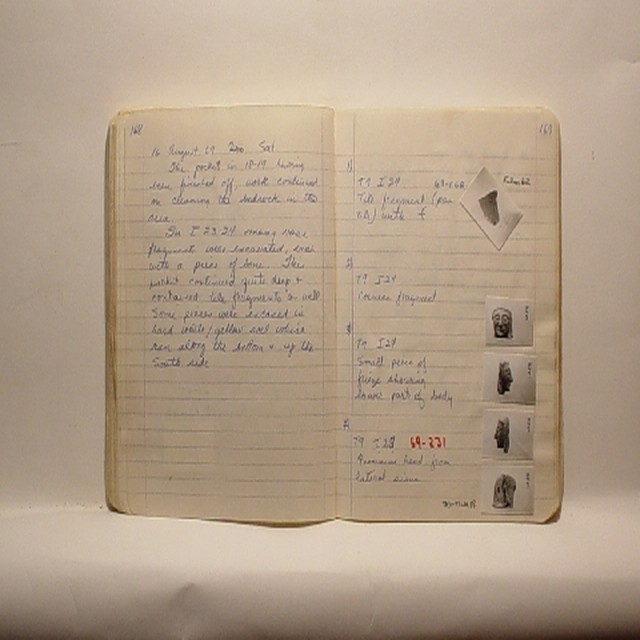 168
16 August 69 Sat.
The pocket in 18-19 having
been finished off, work continued
on cleaning the bedrock in the
area.
In I 23-24 many more
fragments were excavated, even
with a piece of bone. The
pocket continued quite deep +
contained tile fragments as well
Some pieces were encased in
hard white/yellow soil which
ran along the bottom + up the
South side
169
1)
T9 I 24
Tile fragment (pan
tile) with
2)
T9 I 24
Corner fragment
T9 I 24
Small piece of
frieze showing
lower part of body
4)
T9 I 69-231
Feminine head from
lateral sima